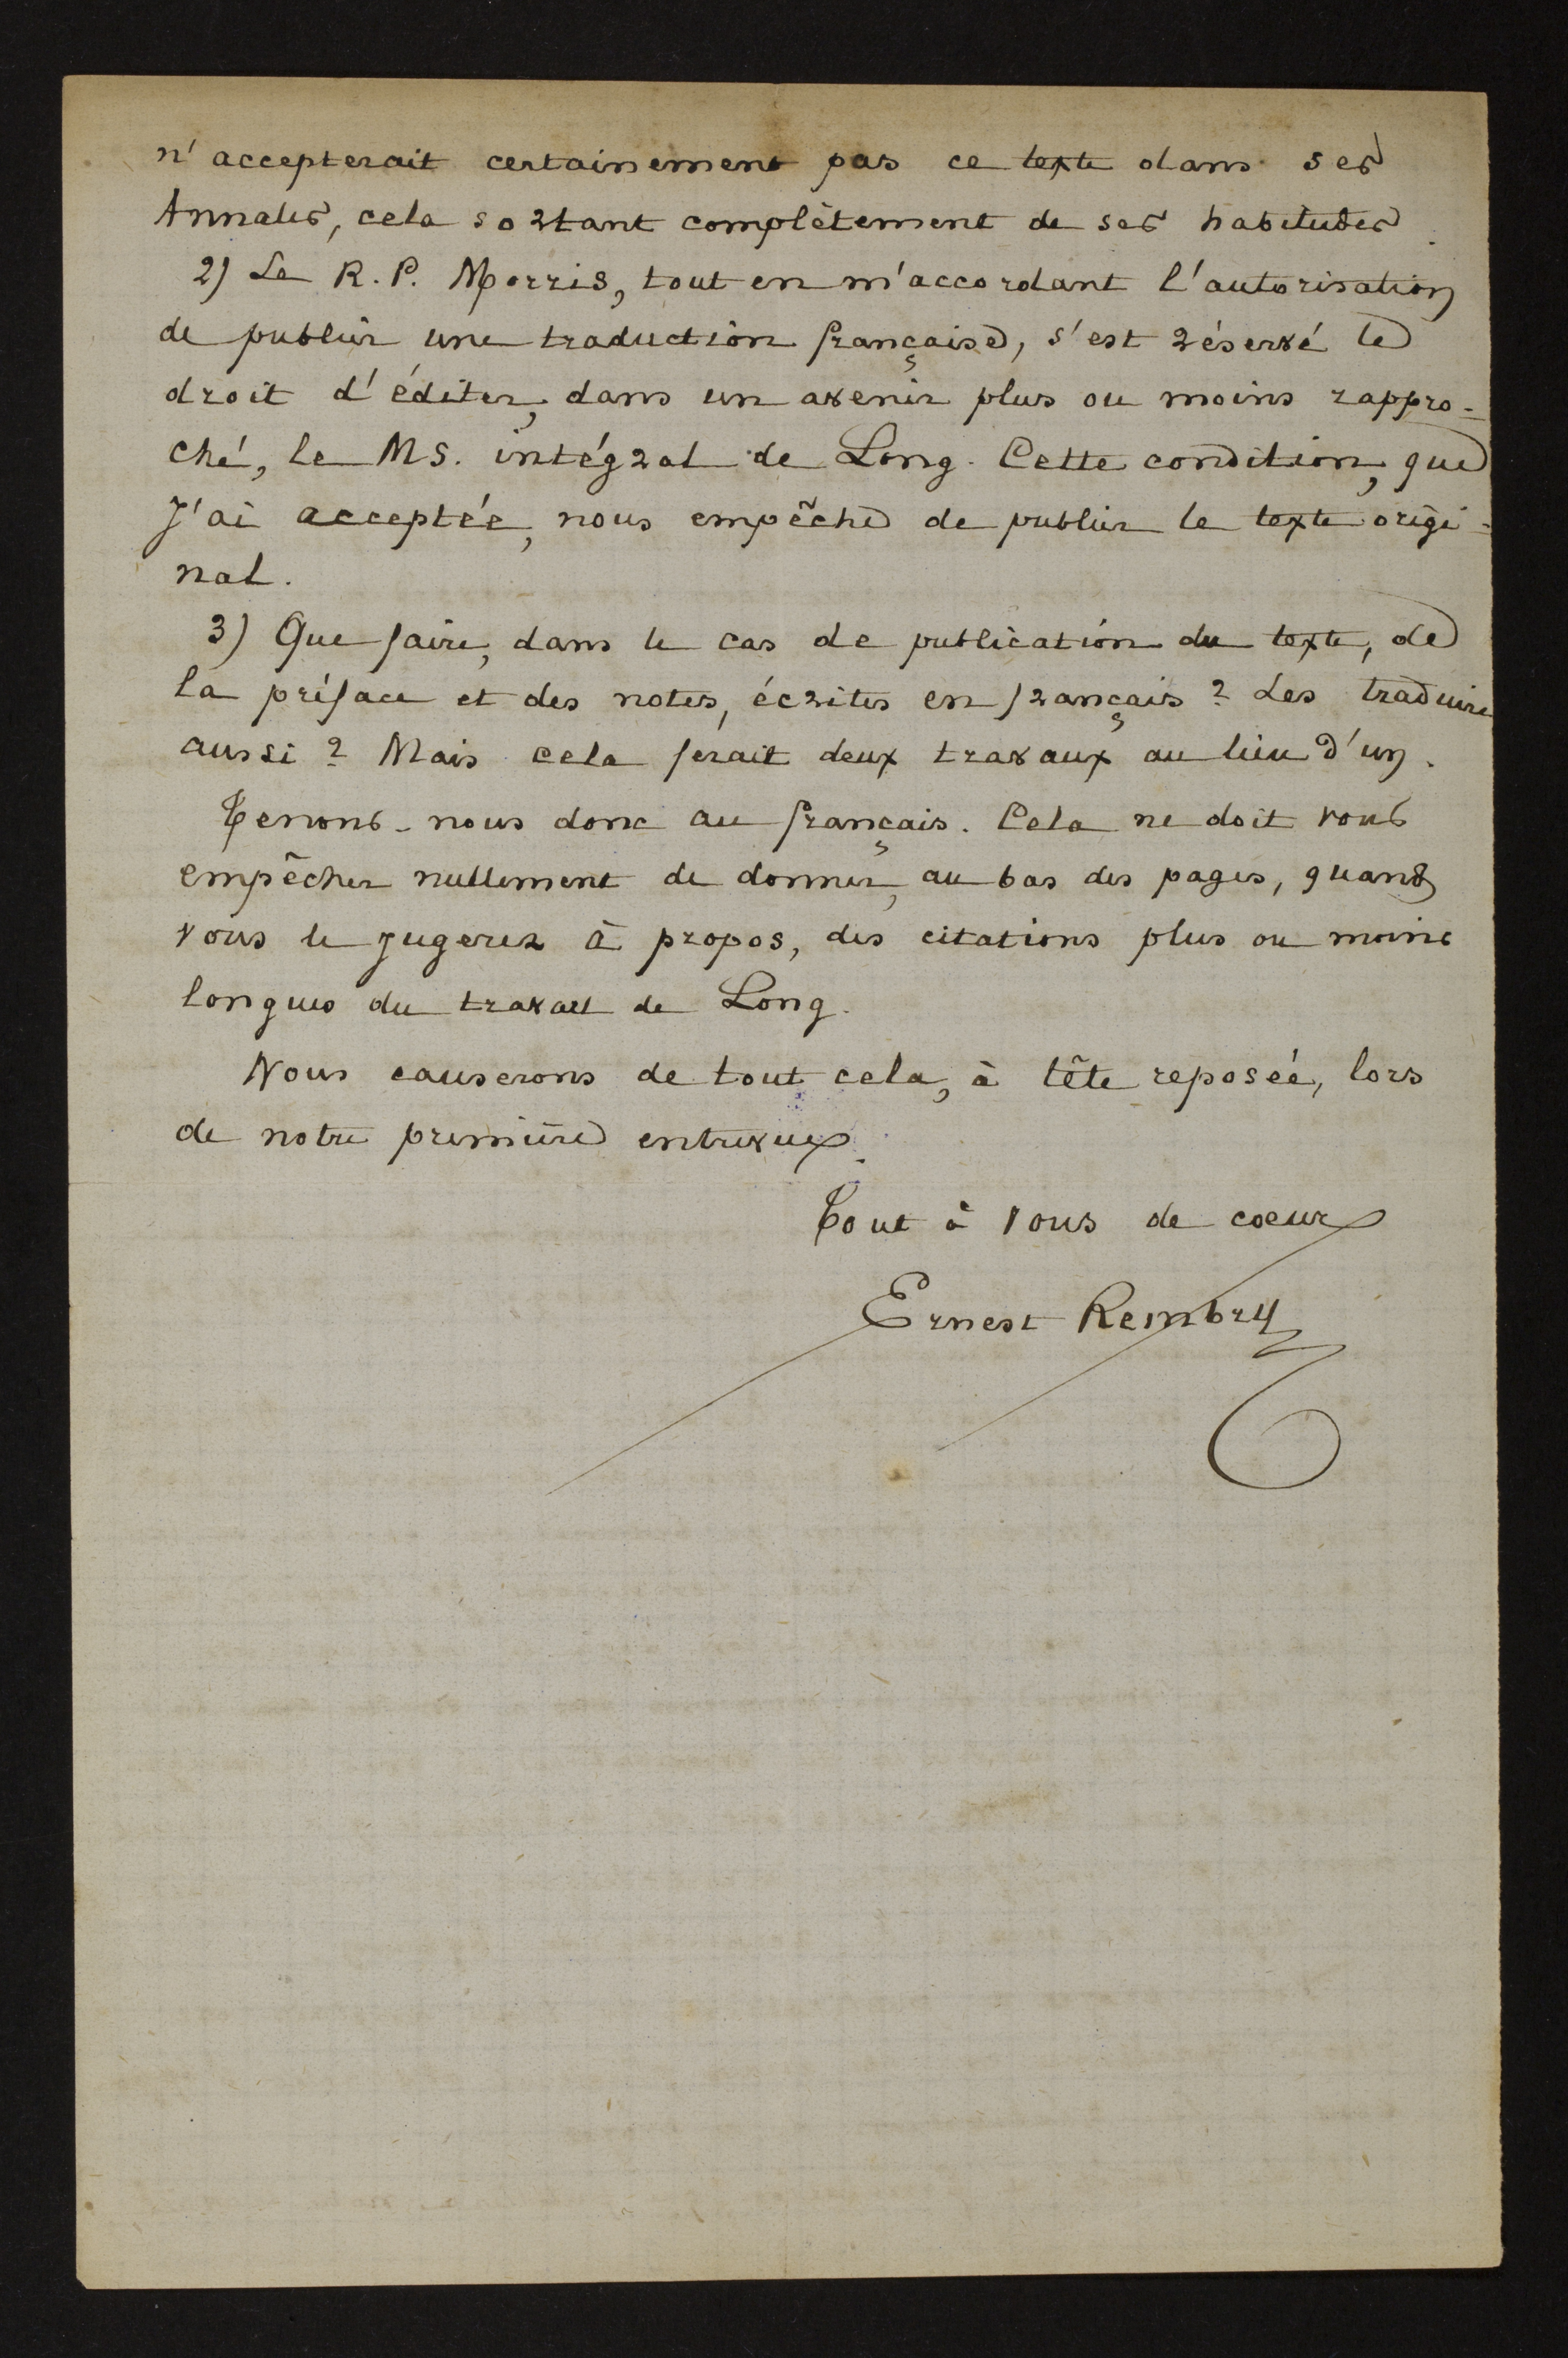 n'accepterait certainement pas ce texte dans ses
Annales, cela sortant complètement de ses habitudes.
2) Le R. P. Morris, tout en m'accordant l'autorisation
de publier une traduction française, s'est réservé le
droit d'éditer, dans un avenir plus ou moins rappro-
ché, le MS. intégral de Long. Cette condition, que
j'ai acceptée, nous empêche de publier le texte origi-
nal.
3) Que faire, dans le cas de publication du texte, de
la préface et des notes, écrites en français ? Les traduire
aussi ? Mais cela ferait deux travaux au lieu d'un.
Tenons-nous donc au français. Cela ne doit vous
empêcher nullement de donner, au bas des pages, quand
vous le jugerez à propos, des citations plus ou moins
longues du travail de Long.
Nous causerons de tout cela, à tête reposée, lors
de notre première entrevue.
Tout à vous de coeur
Ernest Rembry